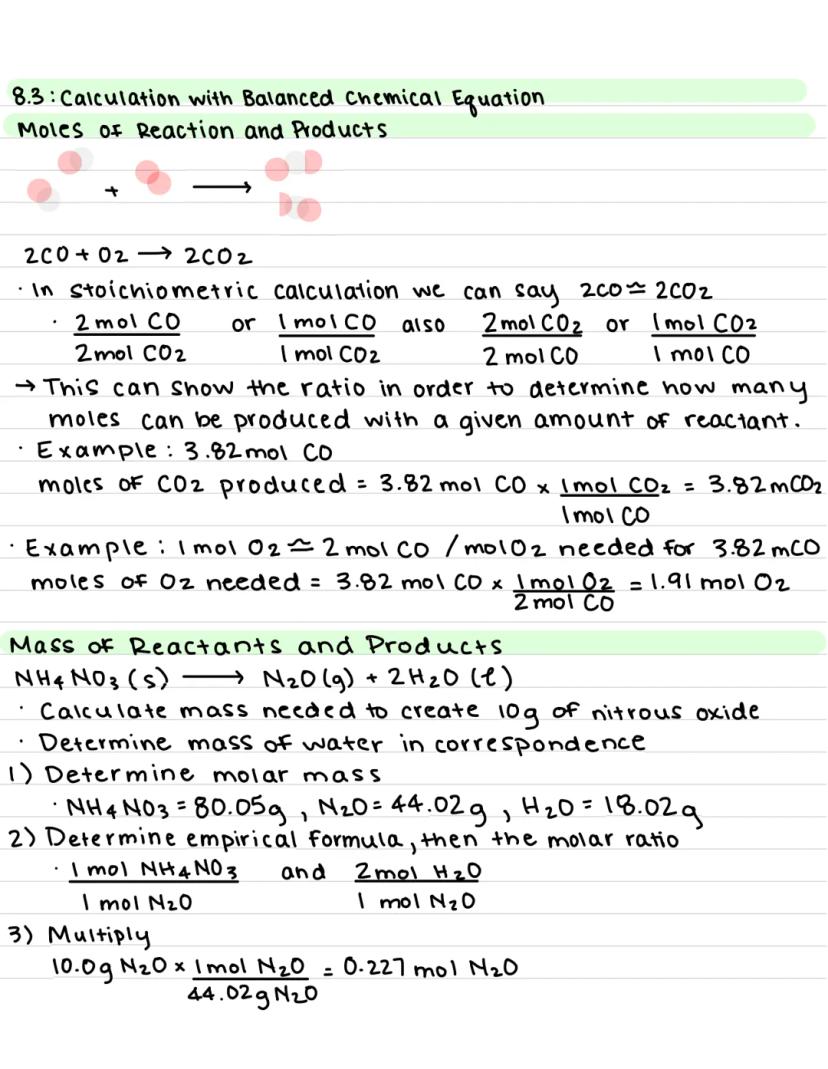 8.3: Calculation with Balanced Chemical Equation
Moles of Reaction and Products
+ ⟶
2CO + O2 ⟶ 2CO2
· In stoichiometric calculation we can say 2CO ≃ 2CO2
· 2 mol CO / 2 mol CO2 or 1 mol CO / 1 mol CO2 also 2 mol CO2 / 2 mol CO or 1 mol CO2 / 1 mol CO
→ This can show the ratio in order to determine how many
moles can be produced with a given amount of reactant.
· Example: 3.82 mol CO
moles of CO2 produced = 3.82 mol CO × 1 mol CO2 / 1 mol CO = 3.82 mCO2
· Example: 1 mol O2 ≃ 2 mol CO / mol O2 needed for 3.82 mCO
moles of O2 needed = 3.82 mol CO × 1 mol O2 / 2 mol CO = 1.91 mol O2
Mass of Reactants and Products
NH4NO3 (s) ⟶ N2O (g) + 2H2O (ℓ)
· Calculate mass needed to create 10g of nitrous oxide
· Determine mass of water in correspondence
1) Determine molar mass
· NH4NO3 = 80.05g, N2O = 44.02g, H2O = 18.02g
2) Determine empirical formula, then the molar ratio
· 1 mol NH4NO3 / 1 mol N2O and 2 mol H2O / 1 mol N2O
3) Multiply
10.0g N2O × 1 mol N2O / 44.02g N2O = 0.227 mol N2O